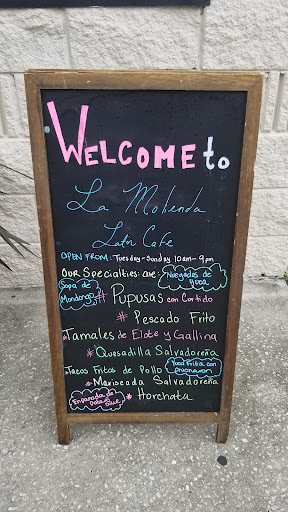 Welcome to
La Molienda
Latin Cafe
OPEN FROM: Tuesday-Sunday 10am-9pm
OUR Specialties: are:
Nuegados de Yuca
Sopa de Mondongo
* Pupusas con Cortido
* Pescado Frito
*Tamales de Elote y Gallina
* Quesadilla Salvadoreña
Tacos Fritos de Pollo
Yuca Frita con
* Mariscada Salvadoreña
Enpanada de
* Horchata